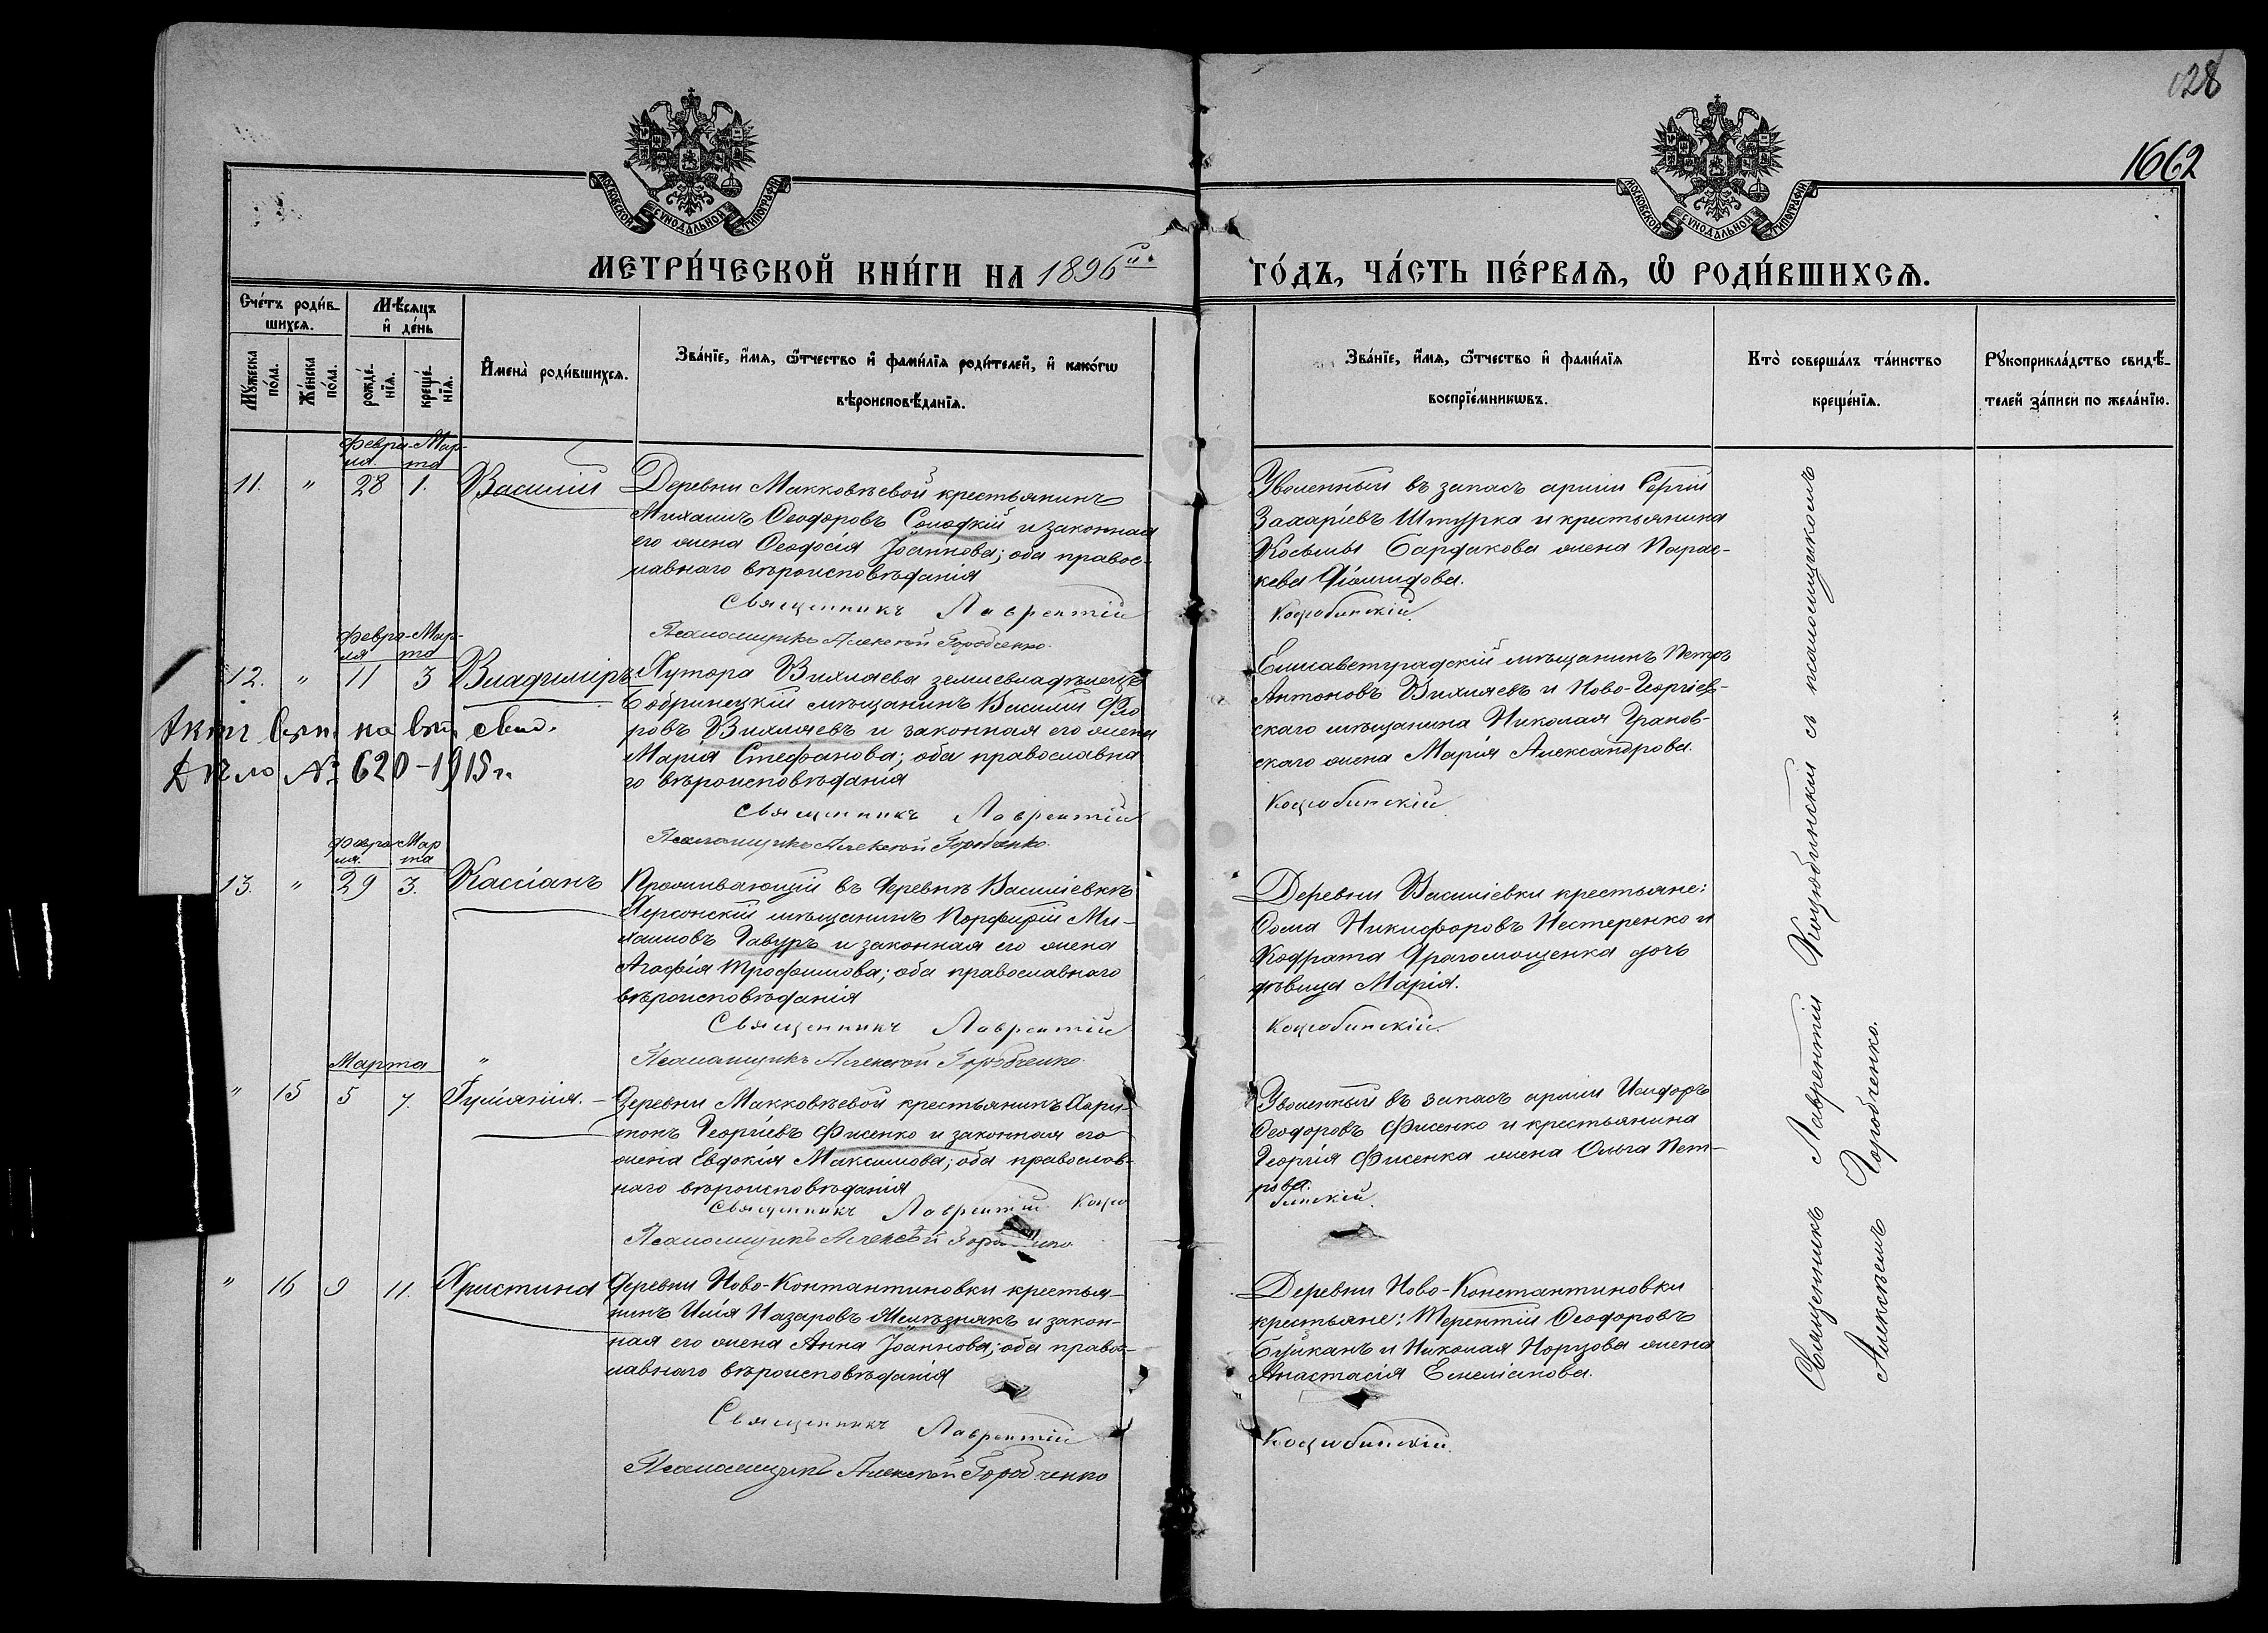 028
1662
МОСКОВСКОЙ СѴНОДАЛЬНОЙ ТИПОГРАФІИ
МОСКОВСКОЙ СѴНОДАЛЬНОЙ ТИПОГРАФІИ
МЕТРИ́ЧЕСКОЙ КНИ́ГИ НА 1896й.
ГО́ДЪ, ЧА́СТЬ ПЕ́РВАѦ, Ѽ РОДИ́ВШИХСѦ.
Сче́тъ роди́в-
шихсѧ.
Мѣ́сѧцъ
и҆ де́нь
Мꙋ́жеска
по́ла.
Же́нска
по́ла.
рожде́-
нїѧ.
креще́-
нїѧ.
И҆мена̀ роди́вшихсѧ.
Зва́нїе, и҆́мѧ, ѻ҆́тчество и҆ фами́лїѧ роди́телей, и҆ како́гѡ
вѣроисповѣ́данїѧ.
Зва́нїе, и҆́мѧ, ѻ҆́тчество и҆ фами́лїѧ
воспрїе́мникѡвъ.
Кто̀ соверша́лъ та́инство
креще́нїѧ.
Рꙋкоприкла́дство свидѣ́-
телей за́писи по жела́нїю.
Февра- Мар-
ля. та
11. " 28 1. Василій
Деревни Макковѣевой крестьянинъ
Михаилъ Ѳеодоровъ Солодкій и законная
его жена Ѳеодосія Іоаннова; оба правос-
лавнаго вѣроисповѣданія
Священникъ Лаврентій
Псаломщикъ Алексѣй Горобченко.
Уволенный въ запасъ арміи Сергій
Захаріевъ Штурка и крестьянина
Косьмы Бардакова жена Парас-
кева Діомидова.
Коцюбинскій.
Февра- Мар-
ля та
12. " 11 3 Владиміръ
Хутора Вихляева землевладѣлецъ
Бобринецкій мѣщанинъ Василій Фло
ровъ Вихляевъ и законная его жена
Марія Стефанова; оба православна
го вѣроисповѣданія
Священникъ Лаврентій
Псаломщикъ Алексѣй Горобченко.
Елисаветградскій мѣщанинъ Петръ
Антоновъ Вихляевъ и Ново-Георгіев-
скаго мѣщанина Николая Гранов-
скаго жена Марія Александрова.
Коцюбинскій
свид.
Дѣло № 620-1915г.
Февра Мар
ля. та
13. " 29 3. Кассіанъ
Проживающій въ деревнѣ Василіевкѣ
Херсонскій мѣщанинъ Порфирій Ми-
хаиловъ Гавуръ и законная его жена
Агафія Трофимова; оба православнаго
вѣроисповѣданія
Священникъ Лаврентій
Псаломщикъ Алексѣй Горобченко.
Деревни Василіевки крестьяне:
Ѳома Никифоровъ Нестеренко и
Кодрата Драгомощенка дочь
дѣвица Марія.
Коцюбинскій.
Марта "
" 15 5 7. Іуліанія.
Деревни Макковѣевой крестьянинъ Хари-
тонъ Георгіевъ Фисенко и законная его
жена Евдокія Максимова; оба православ-
наго вѣроисповѣданія
Священникъ Лаврентій Коцю
Псаломщикъ Алексѣй
Уволенный въ запасъ арміи Исидоръ
Ѳеодоровъ Фисенко и крестьянина
Георгія Фисенка жена Ольга Пет-
рова.
бинскій.
" 16 9 11. Христина
Деревни Ново-Контантиновки крестья-
нинъ Илія Назаровъ Желѣзнякъ и закон-
ная его жена Анна Іоаннова; оба правос-
лавнаго вѣроисповѣданія
Священникъ Лаврентій
Псаломщикъ Алексѣй Горобченко
Деревни Ново-Константиновки
крестьяне: Терентій Ѳеодоровъ
и Николая жена
Анастасія Емеліанова.
Коцюбинскій.
Священникъ Лаврентій Коцюбинскій съ псаломщикомъ
Алексѣемъ Горобченко.